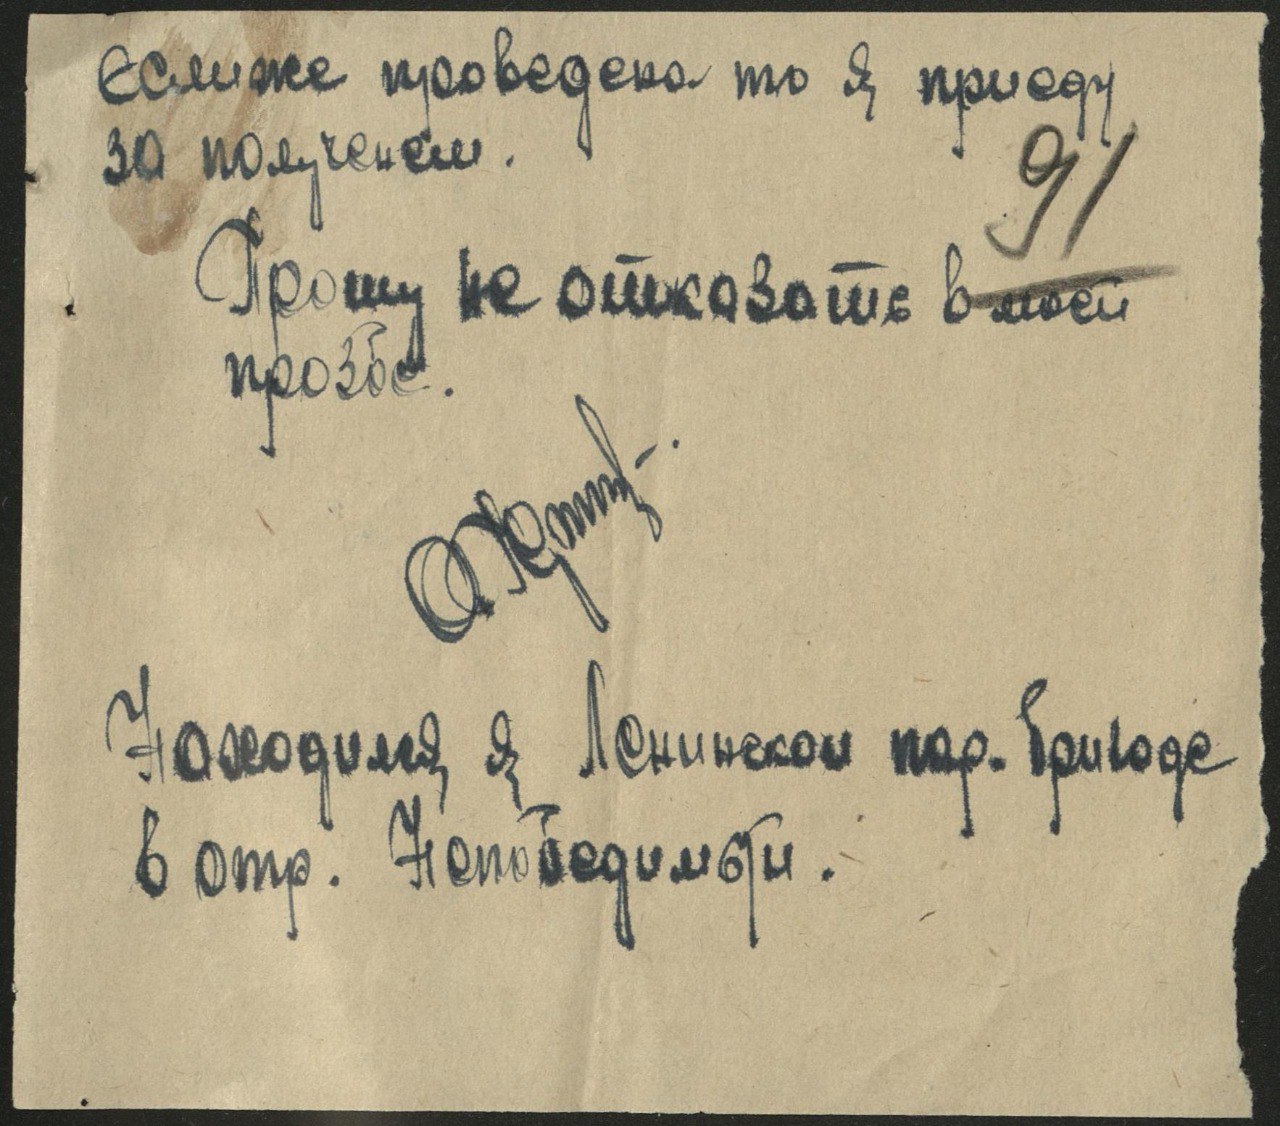 Еслиже проведена то я приеду
за полученем.
91
Прошу не отказать в моей
прозбе.
Находился я Ленинской пар. бригаде
в отр. Непобедимый.